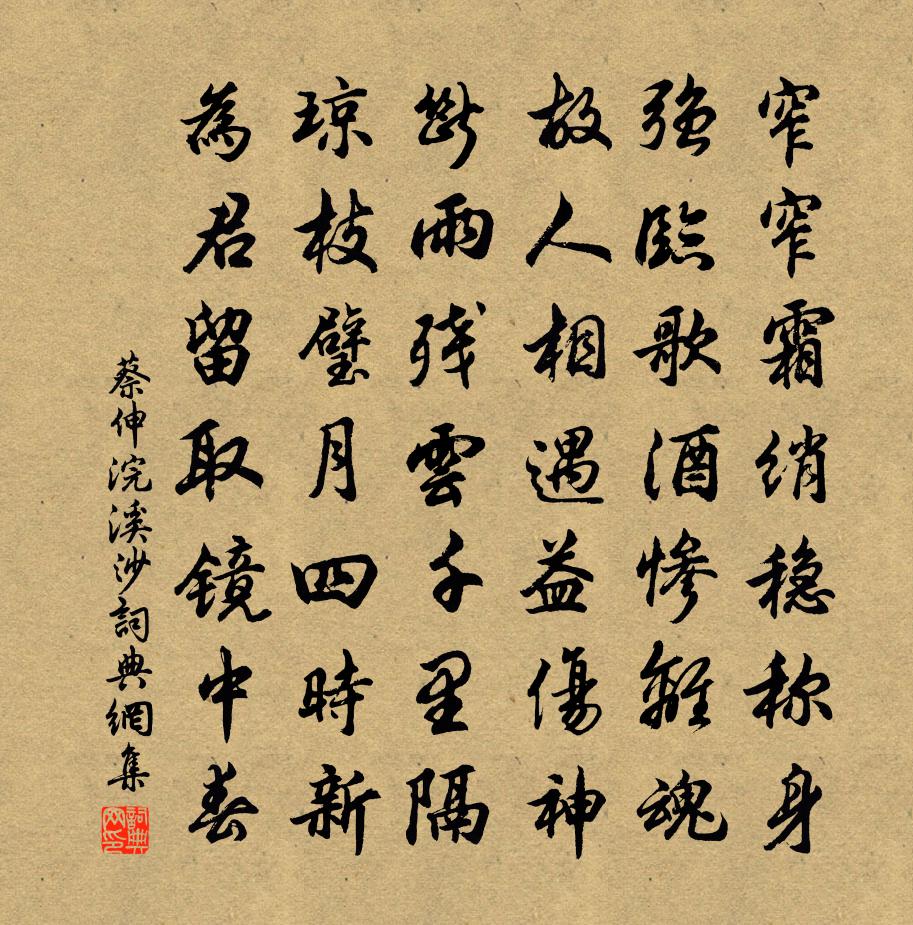 窄窄霜绡稳称身
強臨歌酒惨離魂
故人相遇益傷神
斷雨残雲千里隔
琼枝璧月四時新
為君留取镜中春
蔡伸浣溪沙詞典網集
詞典网印